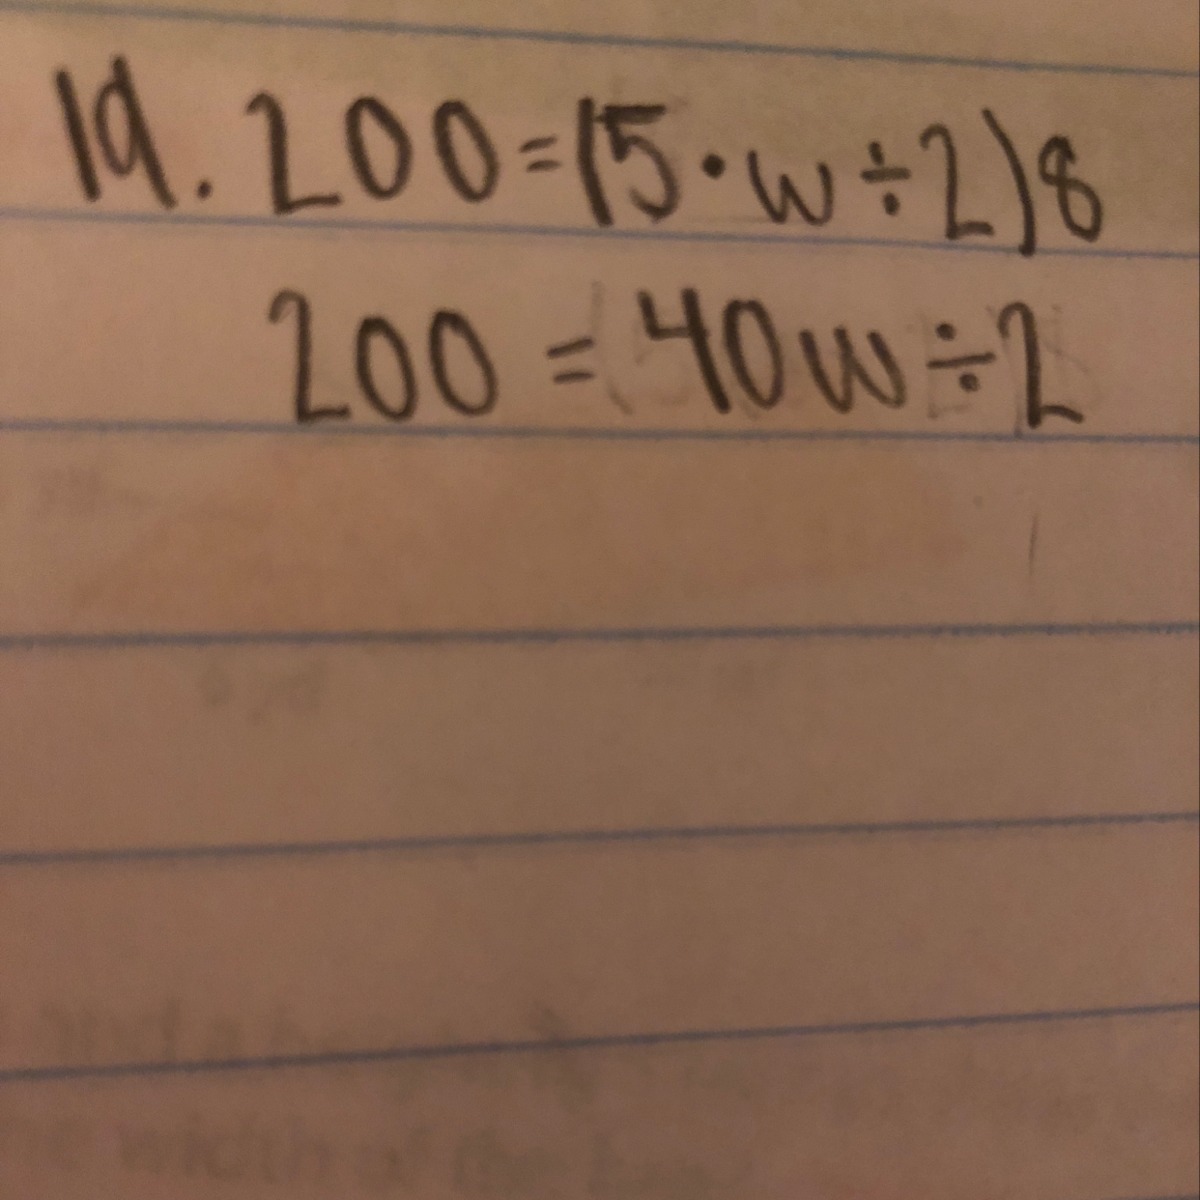 19. 200 = (5 · w ÷ 2) 8
200 = 40 w ÷ 2